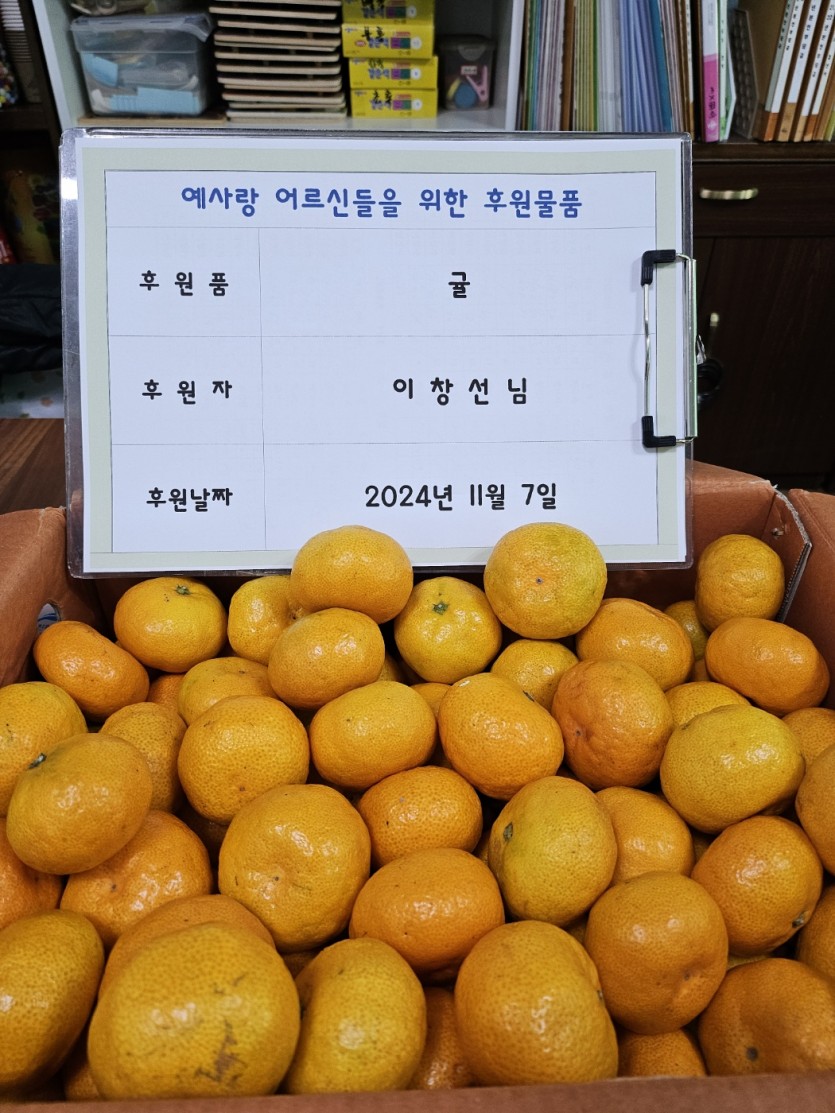 예사랑 어르신들을 위한 후원물품
후 원 품 귤
후 원 자 이 창 선 님
후원날짜 2024년 11월 7일